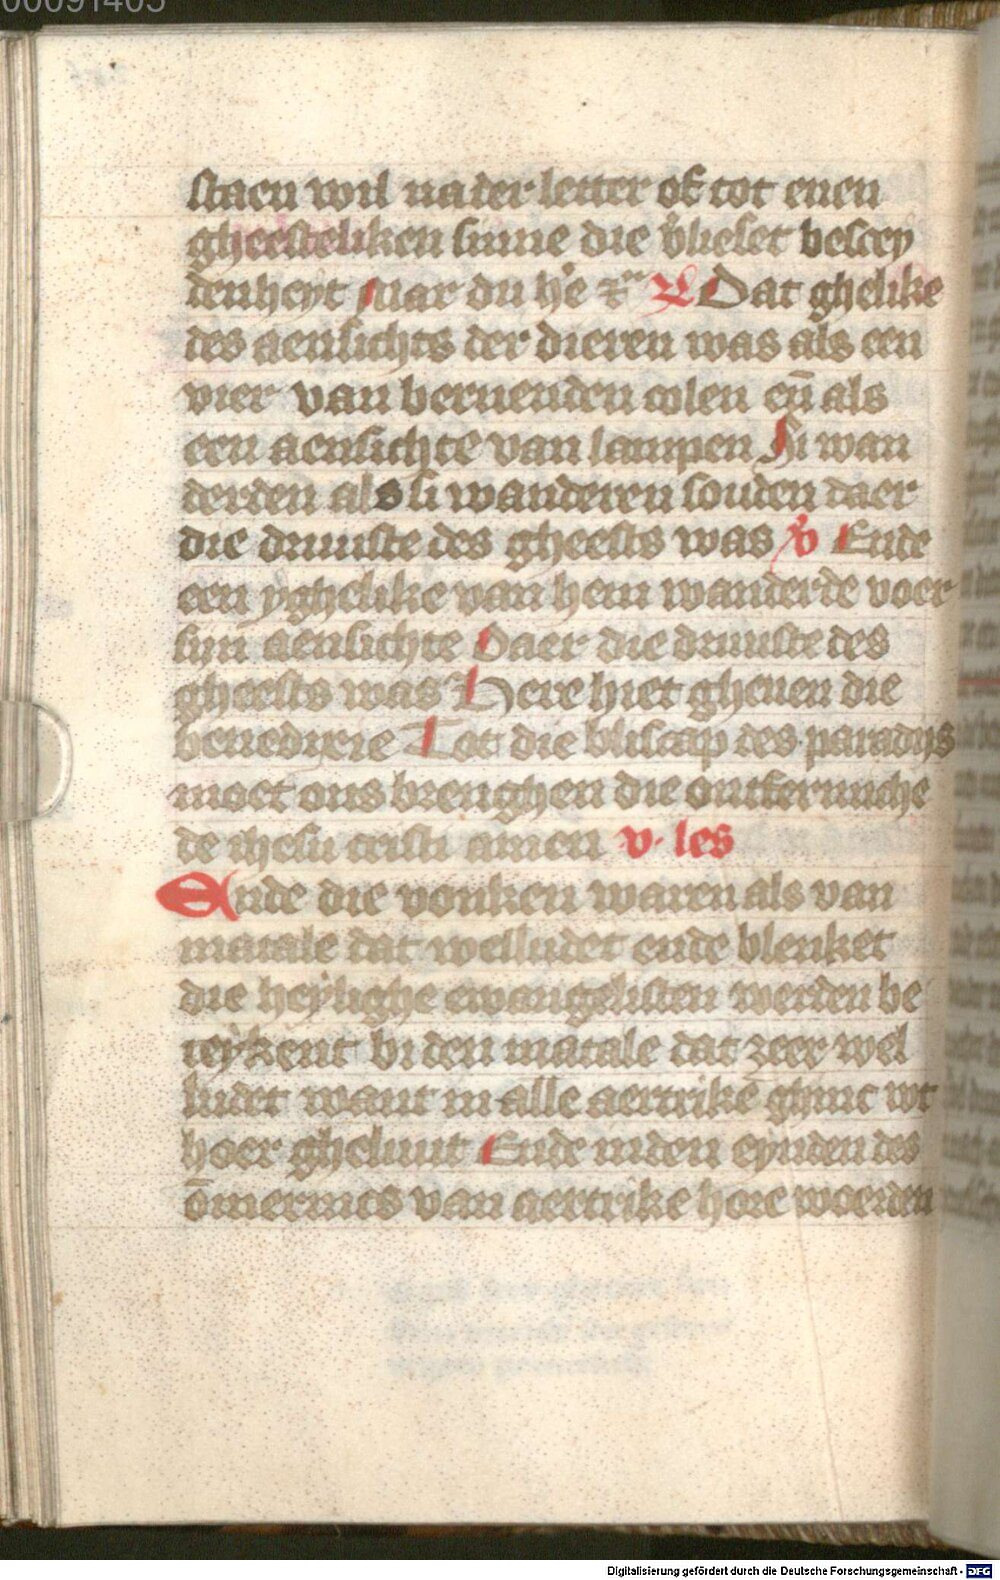 00091405
staen wil na der letter of tot enen
gheesteliken sinne die v̉lieset bescey
denheyt Mar du he᷎ ⁊c᷎ R Dat ghelike
des aensichts der dieren was als een
vier van bernenden colen eñ als
een aensichte van lampen Si wan
derden als si wanderen souden daer
die druuste des gheests was v̉ Ende
een yghelike van hem wanderde voer
sijn aensichte Daer die druuste des
gheests was Here hiet gheuen die
benedixie Tot die bliscap des paradijs
moet ons brenghen die ontfermiche
de ihesu cristi amen v· les
Ende die vonken waren als van
matale dat welludet ende blenket
die heylighe ewangelisten werden be
teykent bi den matale dat zeer wel
ludet want in alle aertrike ghinc wt
hoer gheluut Ende inden eynden des
ōmerincs van aertrike hore woerden
Digitalisierung gefördert durch die Deutsche Forschungsgemeinschaft - DFG